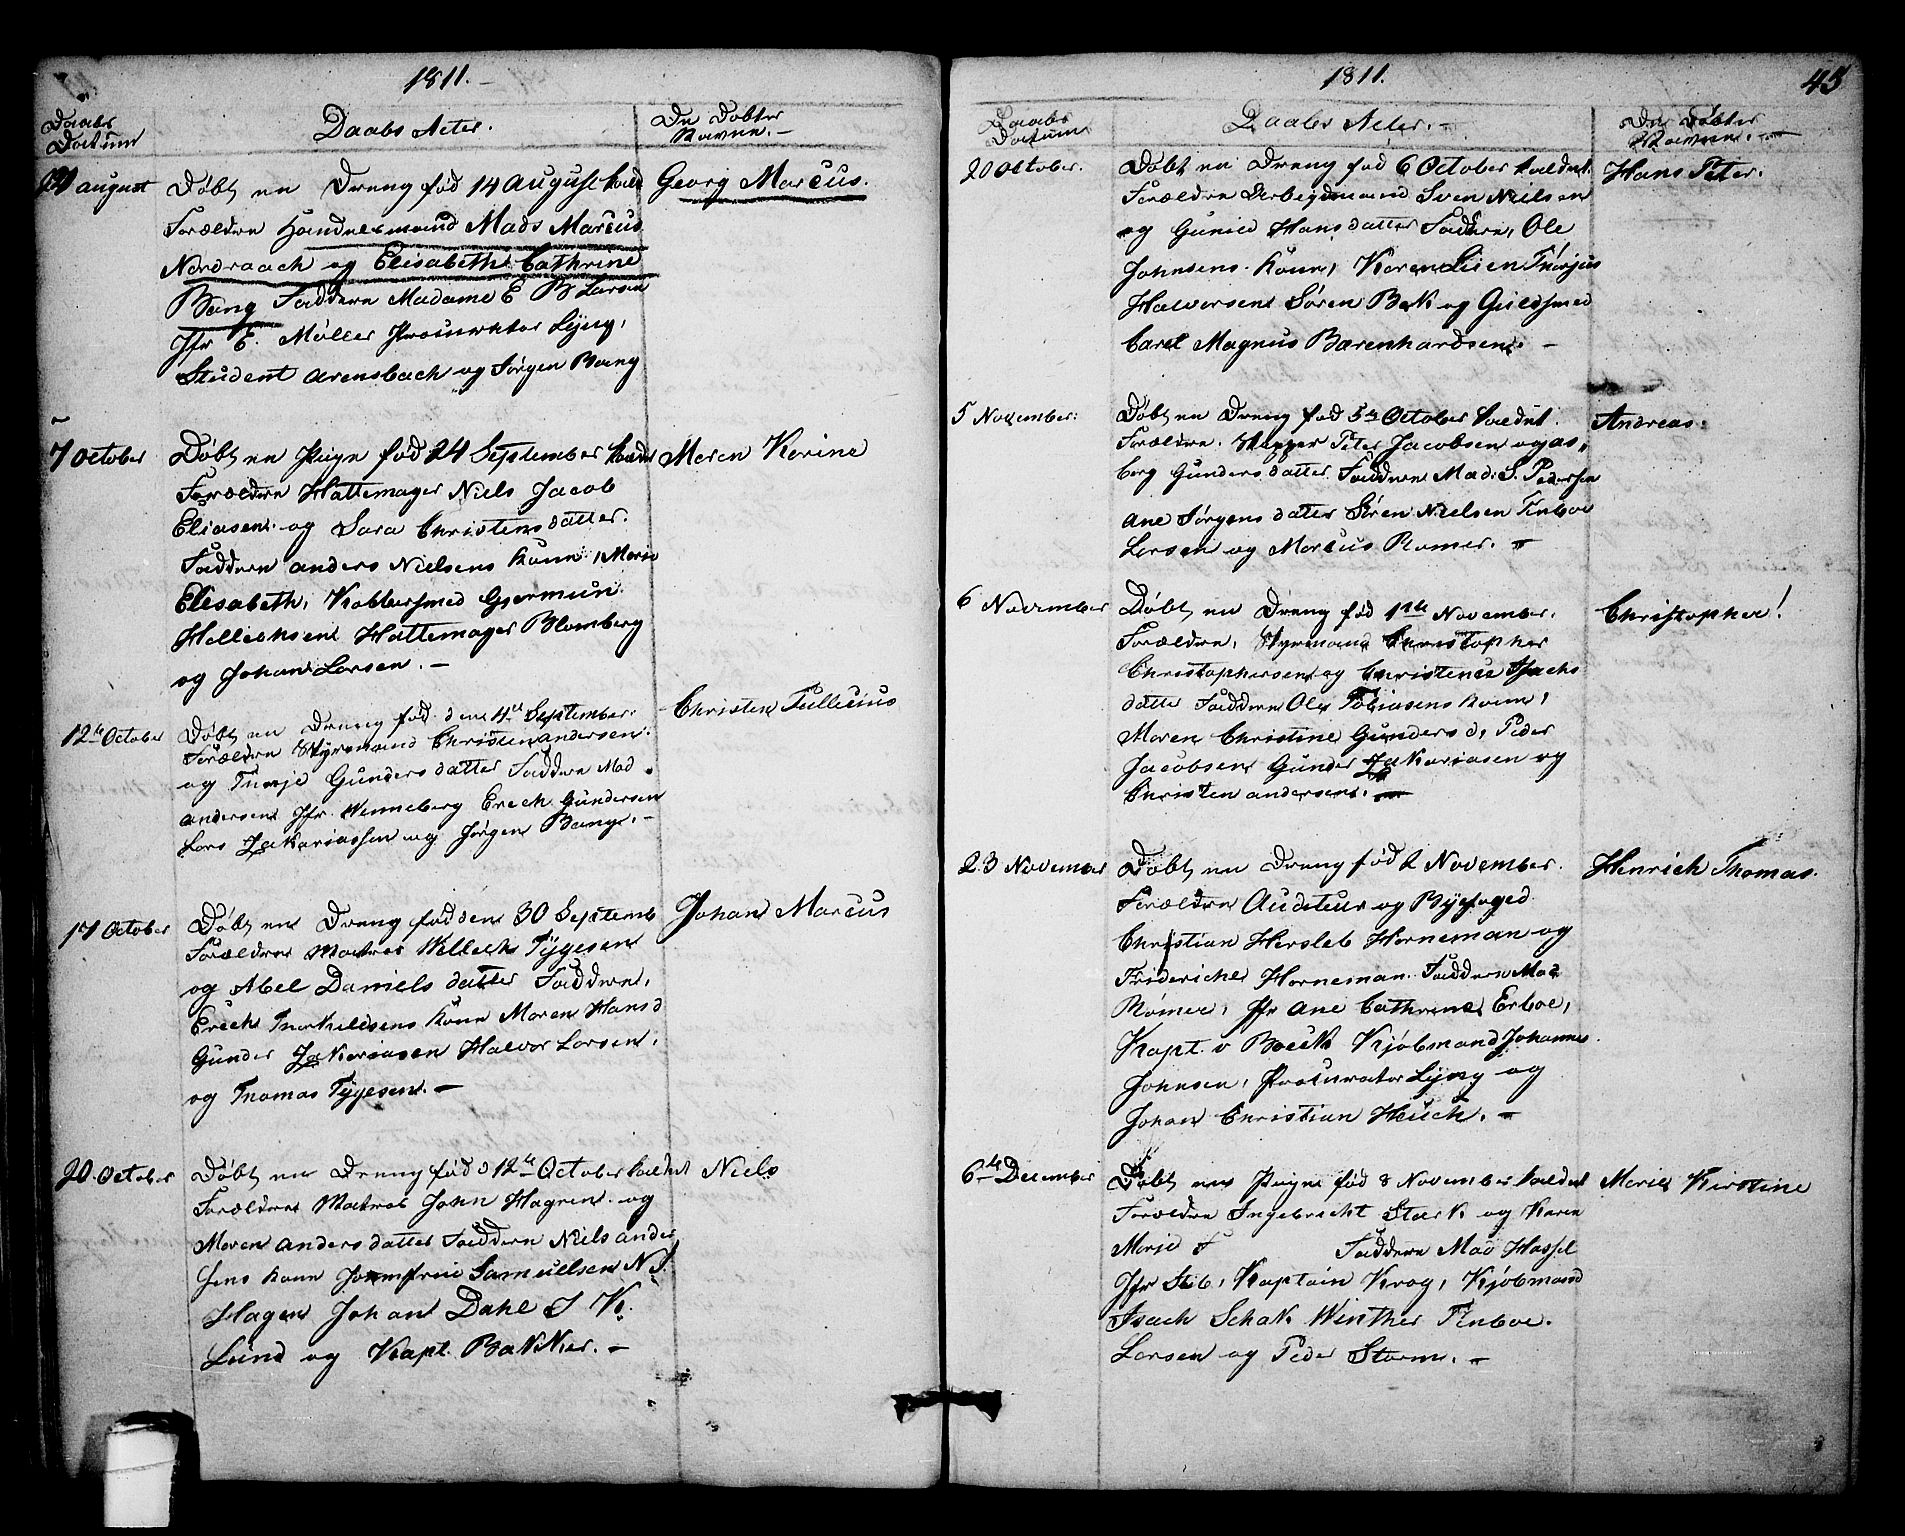 1811.
Daabs Datum
Daabs Acter.
De Døbtes Navne.
august
Døbt en Dreng fød 14 August kald
Georg Marcus.
Forældre Handelsmand Mads Marcus
Nordraach og Elisabeth Cathrine
Bang Faddere Madame E B Larsen
Jfr E. Møller Procurator Lyng,
Student Arensbach og Jørgen Bang
7 October
Døbt en Pige fød 24 September kaldet
Maren Karine
Forældre Hattemager Niels Jacob
Eliasen og Sara Christensdatter.
Faddere anders Nielsens Kone, Maria
Elisabeth, Kobbersmed Gjermun
Hellichsen Hattemager Blomberg
og Johan Larsen. –
12te October
Døbt en Dreng fød den 4de September.
Christen Tullecius
Forældre Styrmand Christen andersen
og Tharje Gundersdatter Faddere Mad
andersen Jfr. Wenneberg Erich Gundersen
Lars Zakariassen og Jørgen Bang. –
17 October
Døbt en Dreng fød den 30 Septemb
Johan Marcus
Forældre Matros Vellech Tygesen
og Abel Daniels datter Faddere,
Erich Thorkildsens Kone Maren Hansd
Gunder Zakariasen Halvor Larsen,
og Thomas Tygesen. –
20 October
Døbt en Dreng fød 12te October kaldet
Niels
Forældre Matros John Hagren og
Maren anders datter Faddere Niels ander
sens Kone Jomfrue Samuelsen N S.
Hagen Johan Dahl S K.
Lund og Kapt. Bakker. –
1811.
45
Daabs Datum
Daabs Acter. –
De Døbtes Navne. –
20 October.
Døbt en Dreng fød 6 October kaldet.
Hans Peter.
Forældre Arbeidsmand Sven Nielsen
og Gunild Hansdatter Faddere, Ole
Johnsens Kone, Karen Lien Thorjus
Halvorsen Søren Bek og Guldsmed
Carel Magnus Barenhardsen. –
5 November:
Døbt en Dreng fød 5te October kaldet.
Andreas.
Forældre. Skipper Peter Jacobsen og as„
berg Gunders datter Faddere Mad. S. Pedersen
Ane Jørgens datter Søren Nielsen Tinboe
Larsen og Marcus Rømer. –
6 November
Døbt en Dreng fød 1ste November.
Christopher!
Forældre, Styrmand Christopher
Christophersen og Christence Isachs
datter Faddere Ole Tobiasens Kone,
Maren Christine Gunders d, Peder
Jacobsen Gunder Zakariasen og
Christen andersen. –
23 November
Døbt en Dreng fød 2 November.
Henrich Thomas.
Forældre Auditeur og Byfoged
Christian Hersleb Horneman og
Friderichе Horneman. Faddere Mad
Rømer, Jfr Ane Cathrine Erboe,
Kapt. v Beck Kjøbmand Johannes
Johnsen, Procurator Lyng og
Johan Christian Heuch. –
6te December
Døbt en Pige fød 8 November kaldet
Marie Kirstine
Forældre Ingebricht Stark og Karen
Marie F Faddere Mad Hassel
Jfr Stib, Kaptain Krag, Kjøbmand
Isach Schak Winther Tinboe.
Larsen og Peder Storm. –